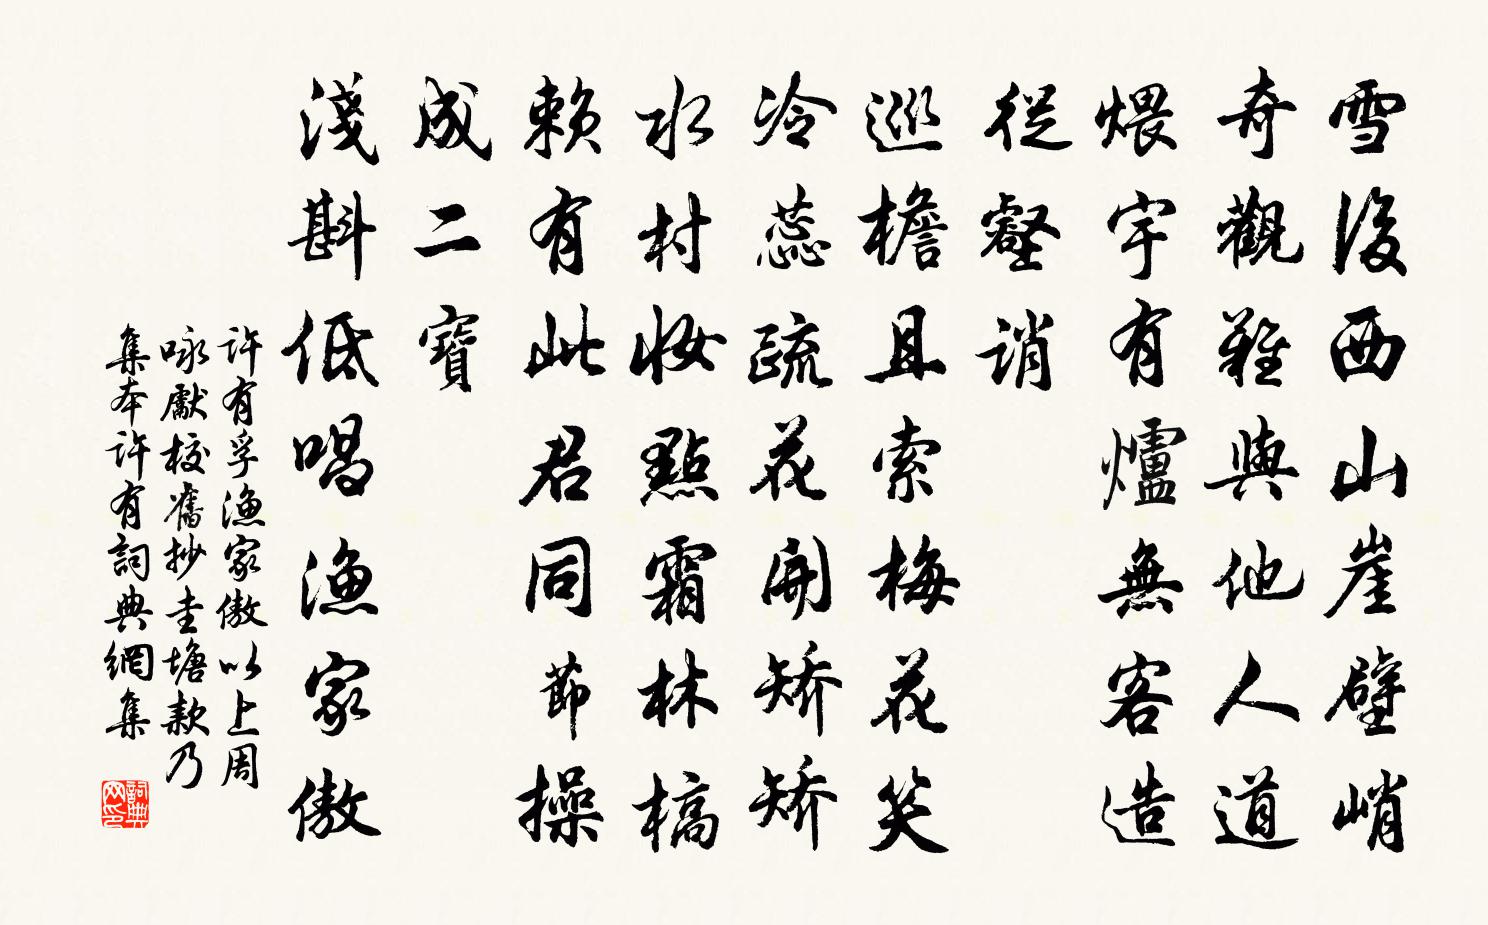 雪後西山崖壁峭
奇觀難與他人道
煨宇有爐無客造
從壑誚
巡檐且索梅花笑
冷蕊疏花開矯矯
水村妝點霜林槁
賴有此君同節操
成二寶
淺斟低唱漁家傲
許有孚漁家傲以上周
咏獻校舊抄圭塘款乃
集本許有詞典網集
詞典网印